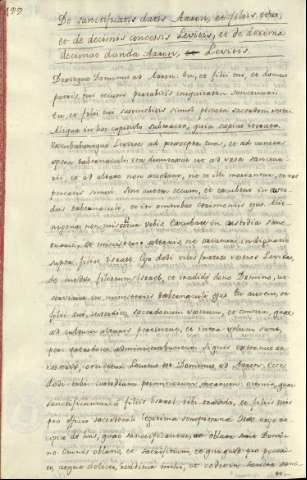 De sanctificatis datis Aaron, et filiis ejus,
et de decimis concessis Levitis, et de decima
decimae danda Aaron, Levitis.
Dixitque Dominus ad Aaron: tu, et filii tui, et domus
patris tui tecum portabitis iniquitatem sanctuarii:
tu, et filii tui simul peccata sacerdotii vestri
opera tabernaculi: ita dumtaxat ut ad vasa sanctua-
rii, et ad altare non accedant, ne et illi moriantur, et vos
pereatis simul. Sint autem tecum, et excubent in custo-
diis tabernaculi, et in omnibus ceremoniis ejus. Alie-
nigena non miscebitur vobis. Excubate in custodia sanc-
tuarii, et in ministerio altaris: ne oriatur indignatio
super filios Israel. Ego dedi vobis fratres vestros Levitas,
de medio filiorum Israel, et tradidi donum Domino, ut
serviant in ministeriis tabernaculi ejus. Tu autem, et
filii tui, custodite sacerdotium vestrum, et omnia, quae
ad cultum altaris pertinent, et intra velum sunt,
per sacerdotes administrabuntur. Si quis externus ac-
cesserit, occidetur. Locutusque Dominus ad Aaron: Ecce
dedi tibi custodiam primitiarum mearum. Omnia, quae
sanctificantur a filiis Israel, tibi tradidi, et filiis tuis
pro officio sacerdotali legitima sempiterna. Haec ergo ac-
cipies de his, quae sanctificantur, et oblata sunt Domi-
no. Omnis oblatio, et sacrificium, et quidquid pro peccato,